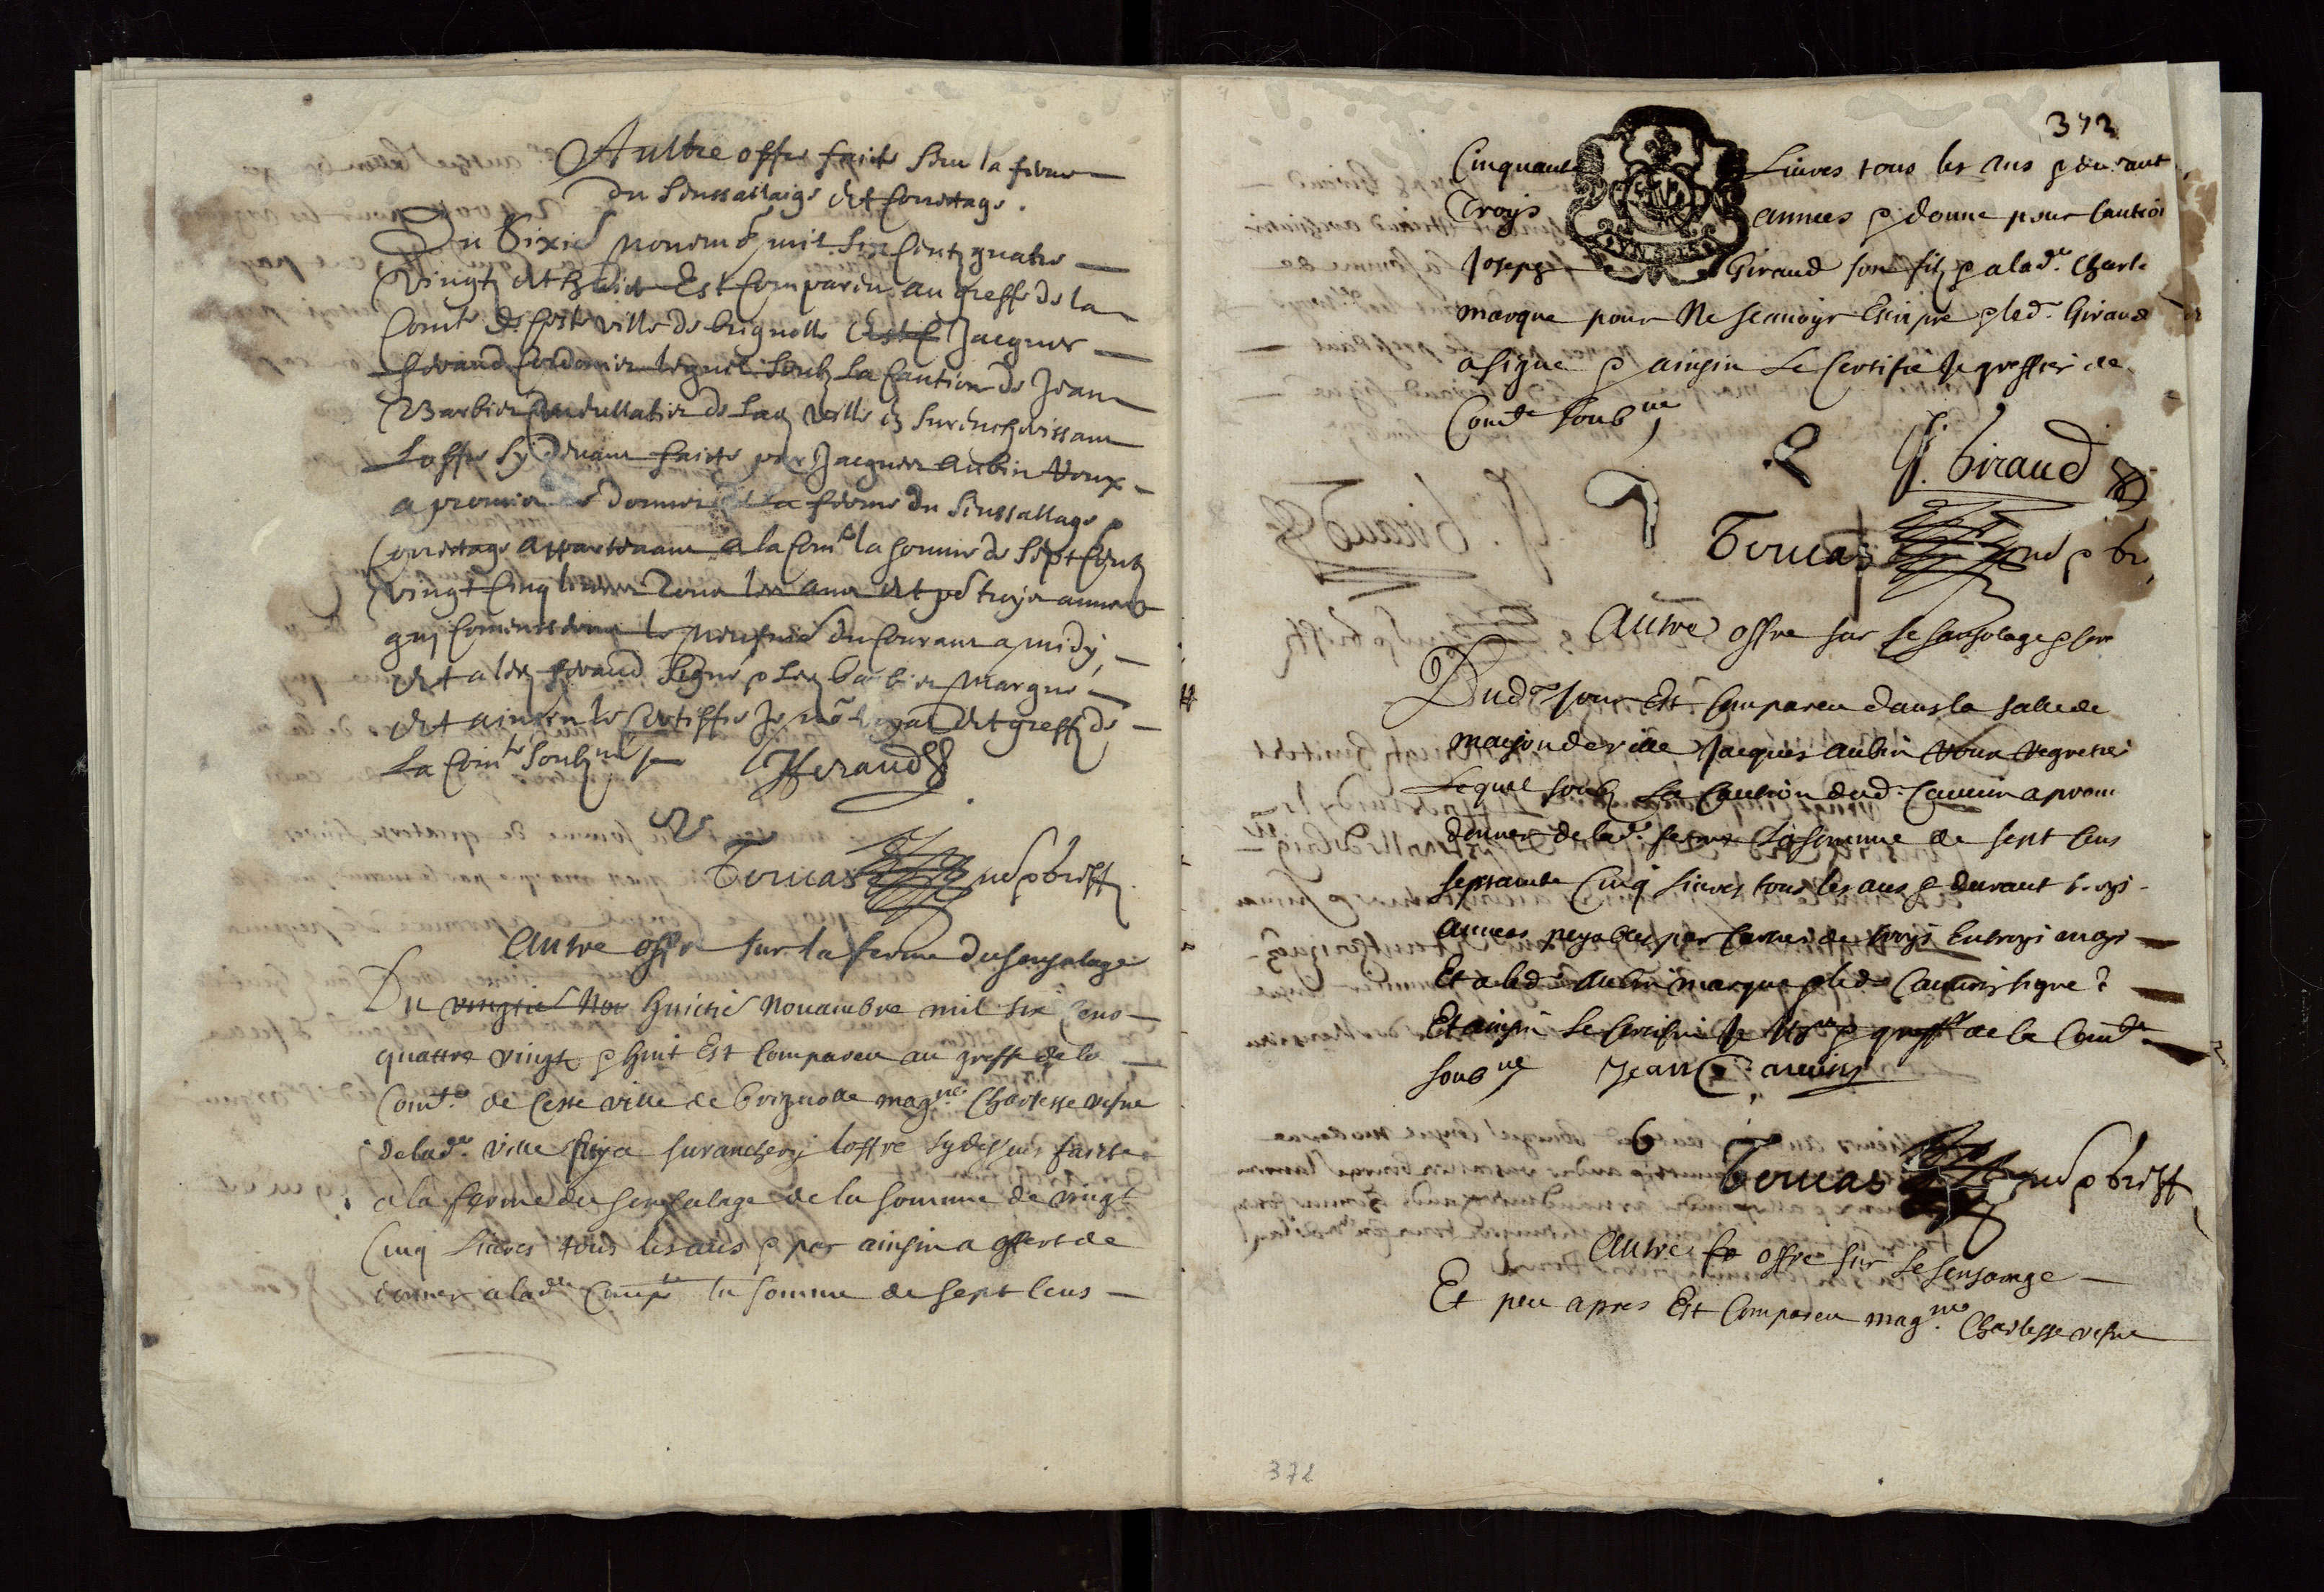 Aultre offre faicte sur la ferme
du sensallaige et corretage.
Du sixie novembe mil six centz quatre
vingtz et huict Est Comparu au greffe de la
Com.te de ceste ville de brignolle Jacques
feraud Cordonier lequel soubz la Caution de Jean
Barbier de lad ville en surencherissant
L offre sy devant faicte par Jacques Aubin Voux
a promis de donner de la ferme du sensallage et
Corretage appartenant a la Com.te la somme de sept centz
vingt cinq livres tous les ans et pt troys annees
quy Commensseront le neufvie du Courant a midy,
et a led feraud signe et led barbier marque
et ainsin le Certiffie Je no.re royal et greff. de
La Com.te soubz.ne
JFeraud
Teruas
Autre offre sur la ferme du sensalage
Du vingtie Nov huictie Novambre mil six cens
quattre vingt et huit Est Compareu au greffe de la
Com.te de Ceste ville de brignolle mag.ne Charlesse vefve
de lad.e ville surancherj loffre sy dessus faicte
a la ferme du sensalage de la somme de vingt
Cinq Livres tous les ans et par ainsin a offert de
donner a lad.e Com.te la somme de sept Cens
372
Cinquante Livres tous les Ans et durant
Troys annees et donne pour Caution
Joseph Giraud son filz et a lad.e Charle
marque pour Ne scavoyr Escripre et led. Giraud
a signe et ainsin Le Certifie Je greffier de
Com.te soub.ne
J. Giraud
Teruas
Autre offre sur le sansolage et
Dud.t jour Est Compareu dans la salle de
mayson de ville Jacques Aubin Voux
Lequel soubz La Caution dud. Cauvin a prom
donner de lad. ferme La somme de sept Cens
septante Cinq Livres tous les ans et durant troys
Annees peyables par Cartier de troys En troys moys
Et a led. Aubin marque et led. Cauvin signe
Et ainsin Le Certiffie Je No.re et greff.r de la Com.te
soub.ne Jean Cauvin
6
Teruas
Autre offre sur le sensaage
Et peu apres Est Compareu mag.ne Charlesse vefve
372